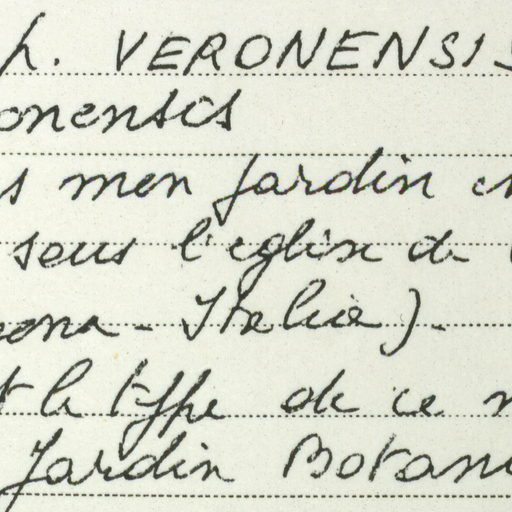 h. VERONENSIS
onensis
s mon jardin en
sous l'eglise de
ona - Italia).
t le type de ce n
Jardin Botani